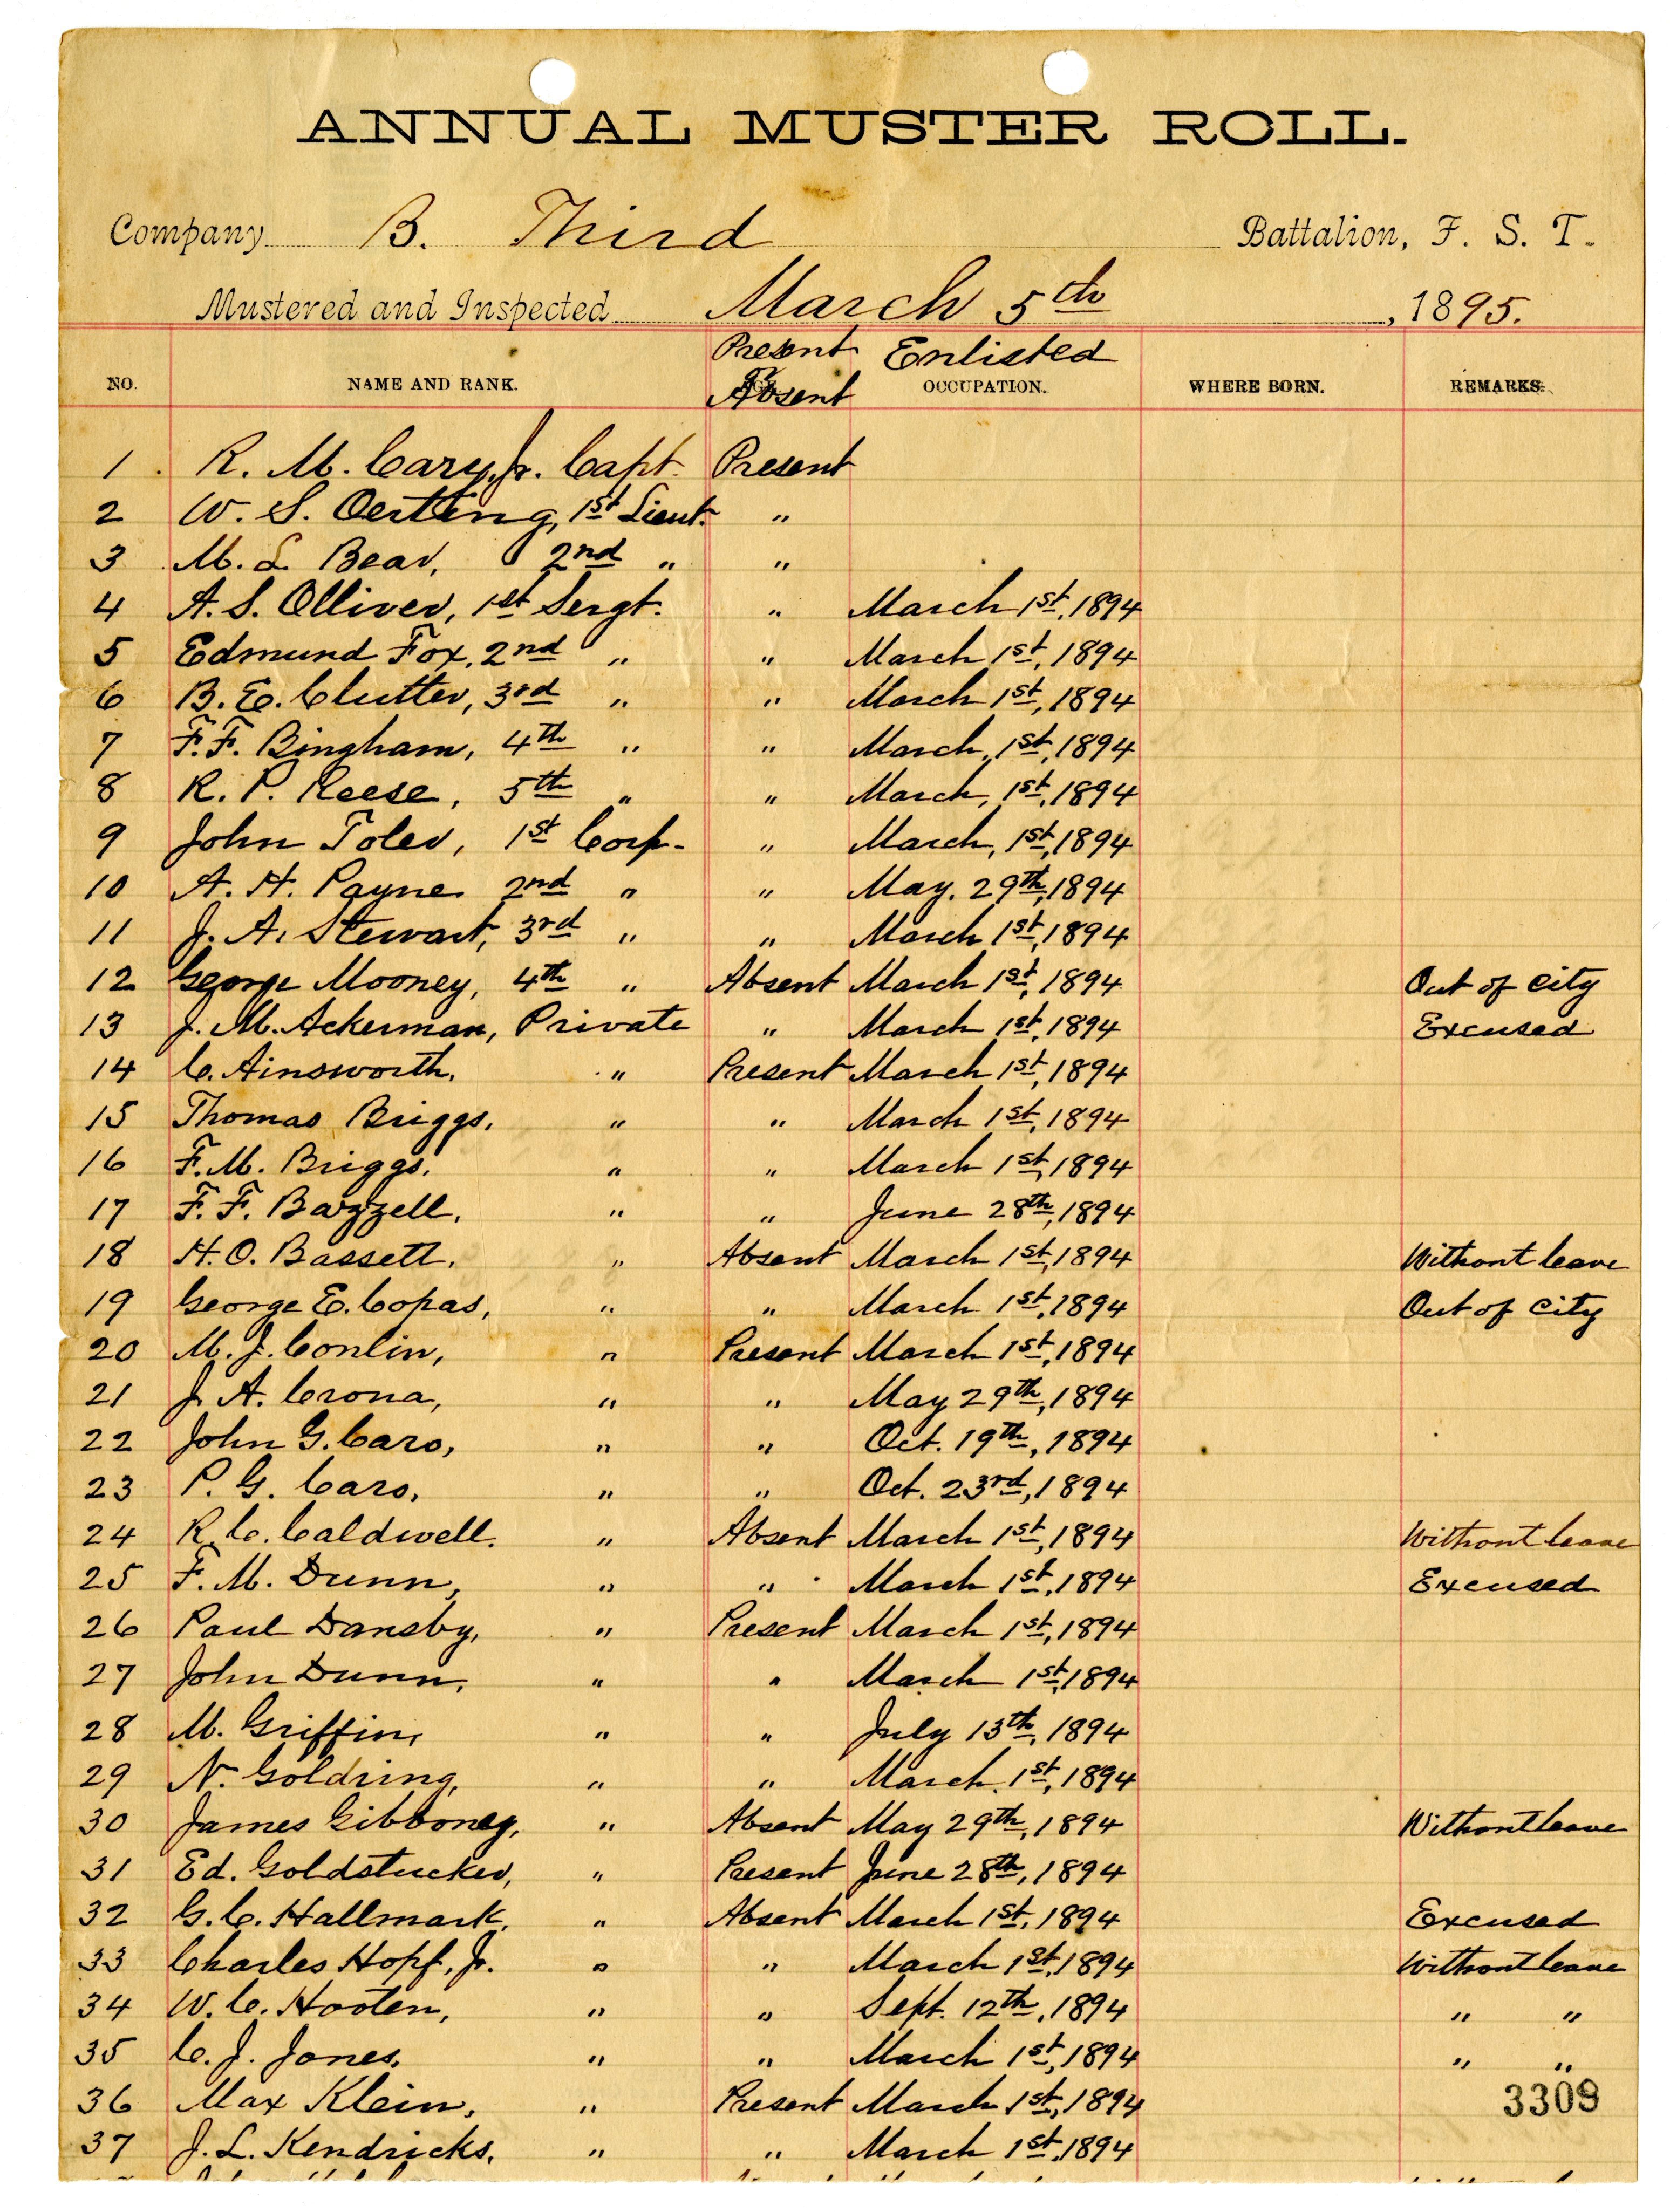 ANNUAL MUSTER ROLL.
Company B. Third Battalion, F. S. T.
Mustered and Inspected March 5th, 1895.
Present Enlisted
NO. NAME AND RANK. Absent OCCUPATION. WHERE BORN. REMARKS.
1 R. M. Cary, Jr. Capt. Present
2 W. S. Oerting, 1st Lieut. "
3 M. L Bear, 2nd " "
4 A. S. Olliver, 1st Sergt. " March 1st, 1894
5 Edmund Fox, 2nd " " March 1st, 1894
6 B. E. Clutter, 3rd " " March 1st, 1894
7 F. F. Bingham, 4th " " March, 1st, 1894
8 R. P. Reese, 5th " " March, 1st, 1894
9 John Toler, 1st Corp. " March, 1st, 1894
10 A. H. Payne. 2nd " " May. 29th, 1894
11 J. A. Stewart, 3rd " " March 1st, 1894
12 George Mooney, 4th " Absent March 1st, 1894 Out of City
13 J. M. Ackerman, Private " March 1st, 1894 Excused
14 C. Ainsworth. " Present March 1st, 1894
15 Thomas Briggs. " " March 1st, 1894
16 F. M. Briggs. " " March 1st, 1894
17 F. F. Bazzell. " " June 28th, 1894
18 H. O. Bassett. " Absent March 1st, 1894 Without leave
19 George E. Copas, " " March 1st, 1894 Out of City
20 M. J. Conlin, " Present March 1st, 1894
21 J. A. Crona, " " May 29th, 1894
22 John G. Caro, " " Oct. 19th, 1894
23 P. G. Caro, " " Oct. 23rd, 1894
24 R. C. Caldwell. " Absent March 1st, 1894 Without leave
25 F. M. Dunn, " " March 1st, 1894 Excused
26 Paul Dansby, " Present March 1st, 1894
27 John Dunn, " " March 1st, 1894
28 M. Griffin, " " July 13th, 1894
29 N. Goldring, " " March 1st, 1894
30 James Gibboney, " Absent May 29th, 1894 Without leave
31 Ed. Goldstucker, " Present June 28th, 1894
32 G. C. Hallmark, " Absent March 1st, 1894 Excused
33 Charles Hopf, Jr. " " March 1st, 1894 Without leave
34 W. C. Hooten, " " Sept. 12th, 1894 " "
35 C. J. Jones, " " March 1st, 1894 " "
36 Max Klein, " Present March 1st, 1894 3309
37 J. L. Kendricks. " " March 1st, 1894